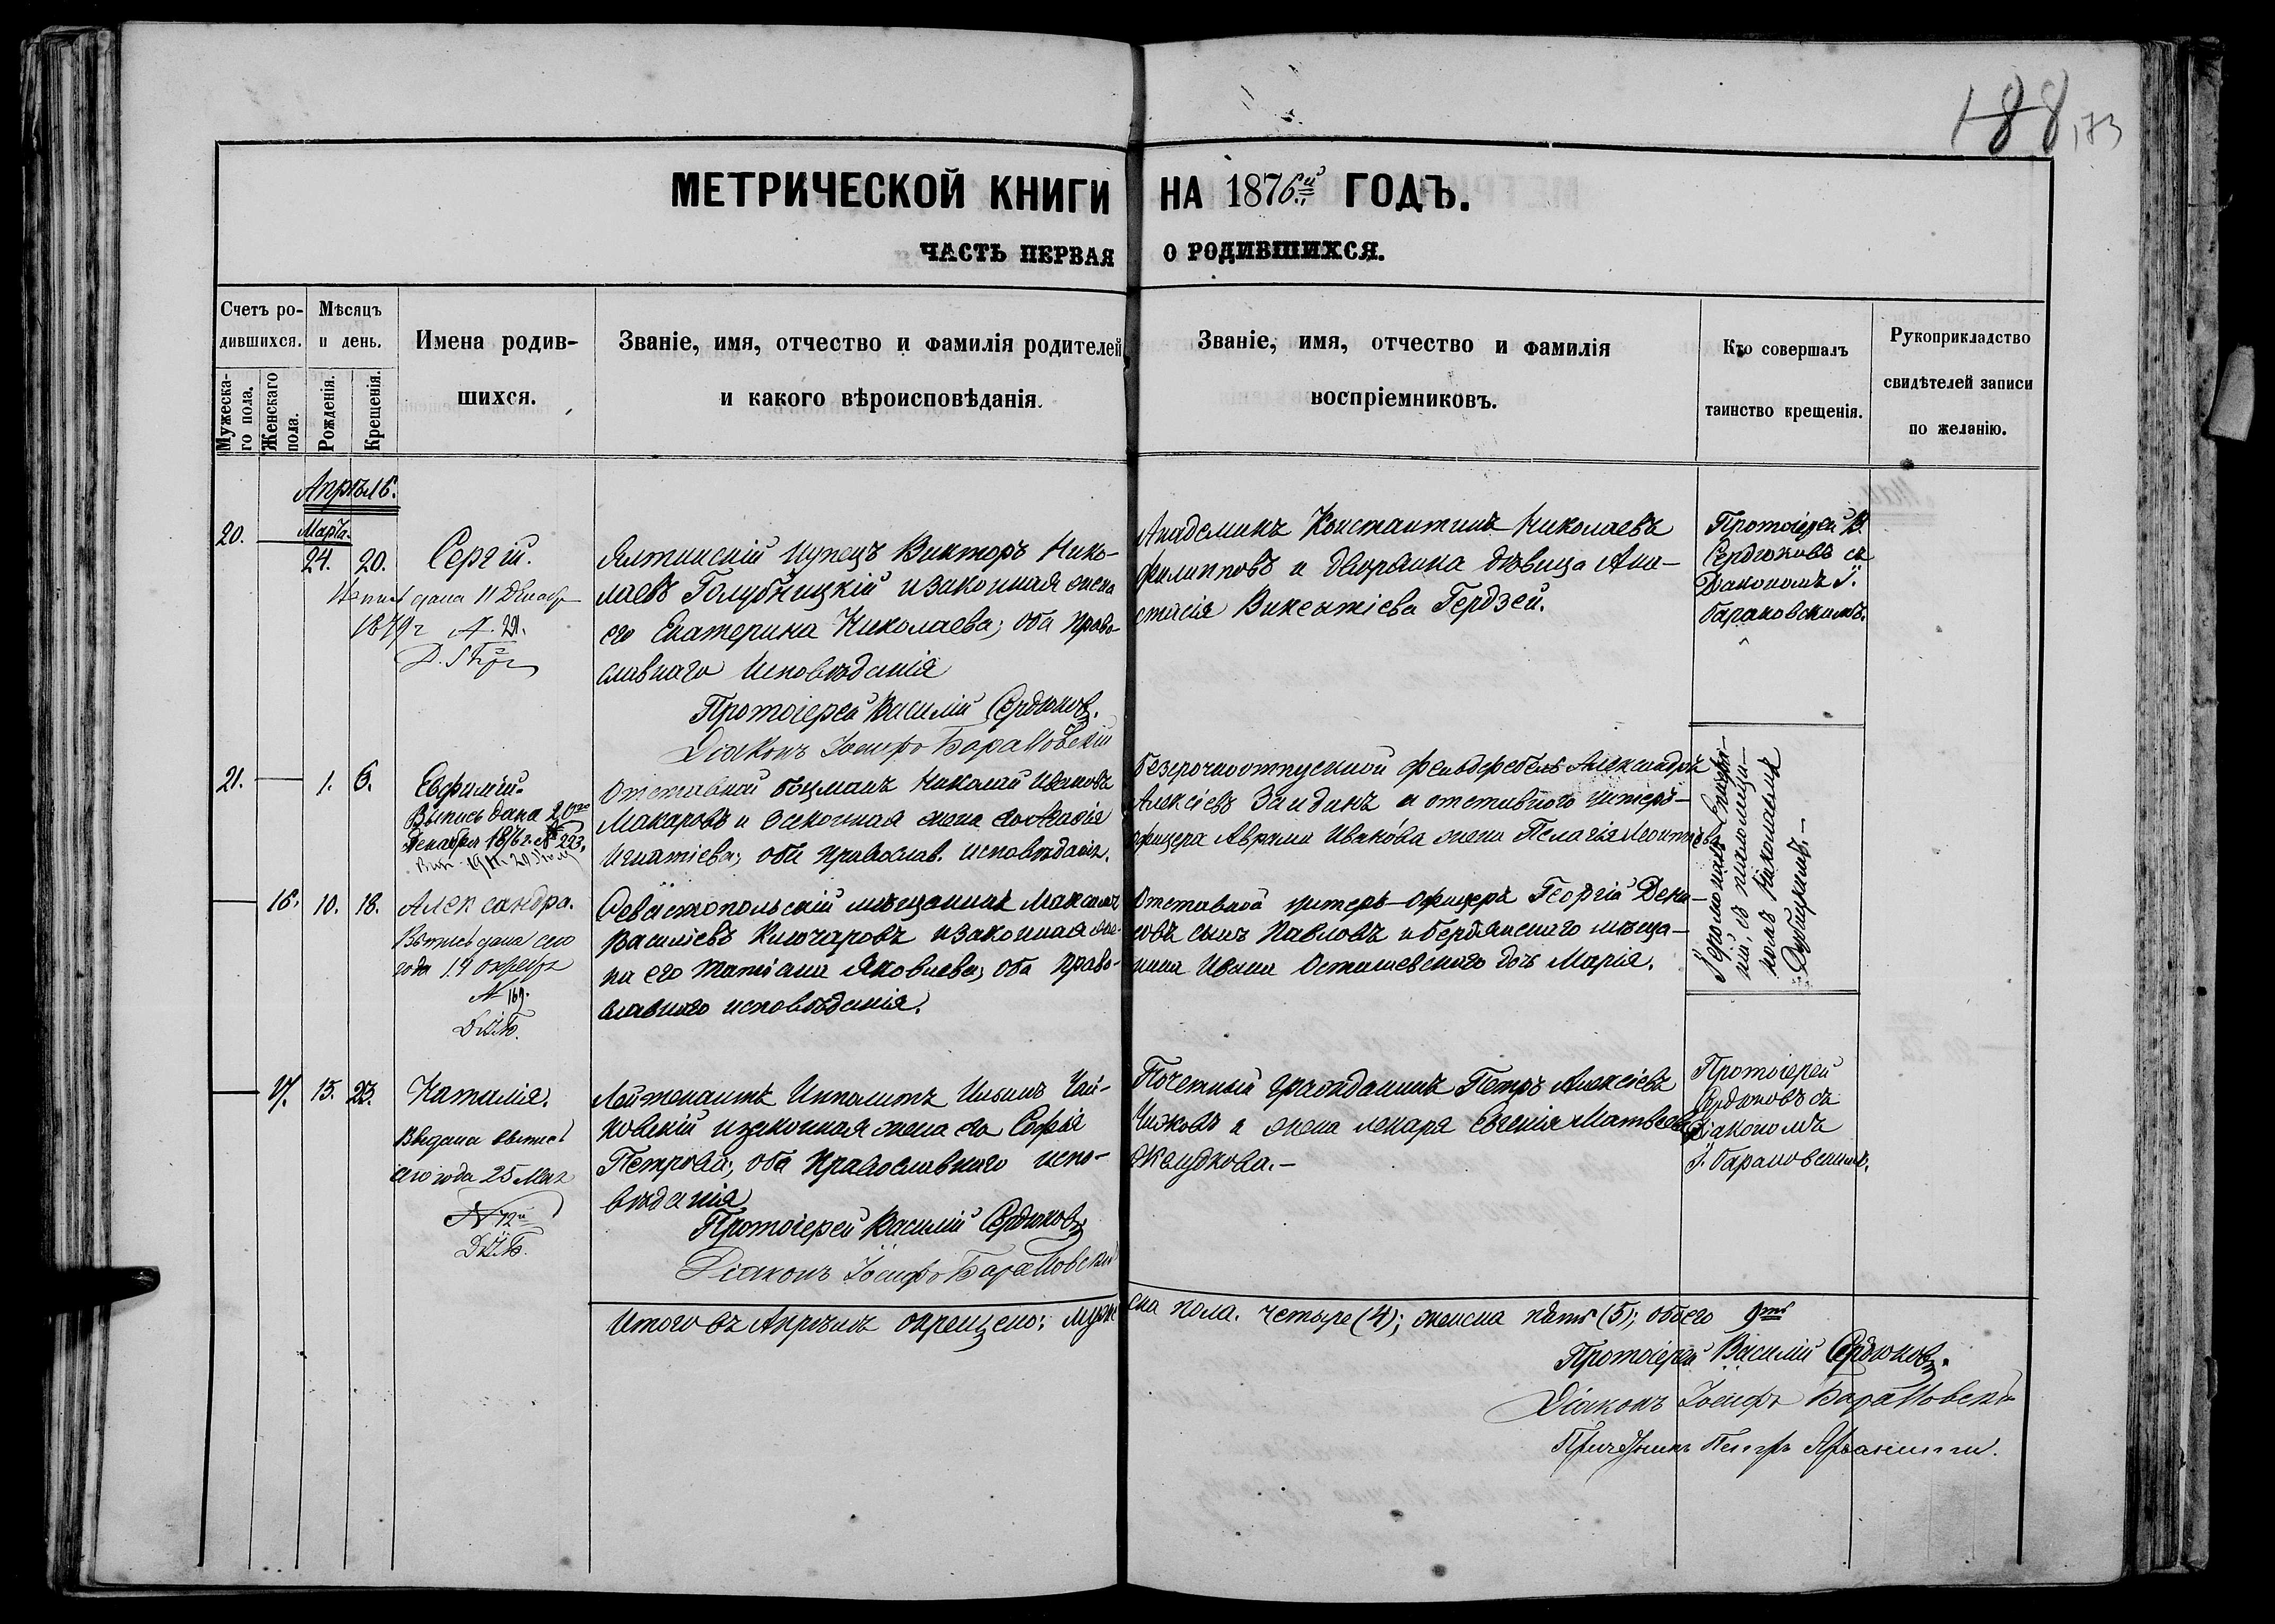 188 173
МЕТРИЧЕСКОЙ КНИГИ НА 1876й ГОДЪ.
ЧАСТЬ ПЕРВАЯ О РОДИВШИХСЯ.
Счетъ ро-
дившихся.
Мужеска-
го пола.
Женскаго
пола.
Мѣсяцъ
и день.
Рожденія.
Крещенія.
Имена родив-
шихся.
Званіе, имя, отчество и фамилія родителей
и какого вѣроисповѣданія.
Званіе, имя, отчество и фамилія
воспріемниковъ.
Кто совершалъ
таинство крещенія.
Рукоприкладство
свидѣтелей записи
по желанію.
Апрѣль.
20.
Марта.
24. 20. Сергій.
дана 11 Декабр
1879г № 221.
Ялтинскій купецъ Викторъ Нико-
лаевъ Голубницкій и законная жена
его Екатерина Николаева; оба право-
славнаго исповѣданія
Протоіерей Василій Сердюковъ.
Діаконъ Іосифъ Барановскій
Академикъ Константинъ Николаевъ
Филипповъ и дворянка дѣвица Ана-
стасія Викентіева Гердзей.
Протоіерей В.
Сердюковъ съ
Діакономъ І.
Барановскимъ.
21. 1. 6. Евфимій.
Выпись дана 20го
Декабря 1876г. № 223.
Отставной боцманъ Николай Ивановъ
Макаровъ и законная жена его
Игнатіева; оба православ. исповѣданія.
Безсрочноотпускной фельдфебель Александръ
Алексѣевъ и отставного унтеръ-
офицера Аврама Иванова жена Пелагія Леонтьева
16. 10. 18. Александра.
Выпись дана сего
года 19 октября
№ 169.
Севастопольскій мѣщанинъ Максимъ
Васильевъ Ключаровъ и законная же-
на его Татіана Яковлева; оба право-
славнаго исповѣданія.
Отставной унтеръ-офицеръ Георгій Дени-
совъ сынъ Павловъ и Бердянскаго мѣща-
нина Ивана Осташевскаго дочь Марія.
Іеромонахъ
ній, съ псаломщи-
комъ Николаемъ
Дубицкимъ.-
17. 15. 23. Наталія.
Выдана выпись
сего года 25 Мая
№ 72й
Лейтенантъ Ипполитъ Ильинъ Чай-
ковскій и законная жена его Софія
Петрова; оба православнаго испо-
вѣданія
Протоіерей Василій Сердюковъ
Діаконъ Іосифъ Барановскій
Почетный гражданинъ Петръ Алексѣевъ
Чижовъ и жена лекаря Евгенія Матвѣева
Желудкова.-
Протоіерей
Сердюковъ съ
Діакономъ
І. Барановскимъ.
Итого въ Апрѣлѣ окрещено: мужеска пола. четыре (4); женска пять (5); обоего 9ть
Протоіерей Василій Сердюковъ.
Діаконъ Іосифъ Барановскій
Причетникъ Петръ